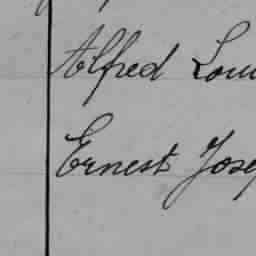 Alfred Lou
Ernest Jose